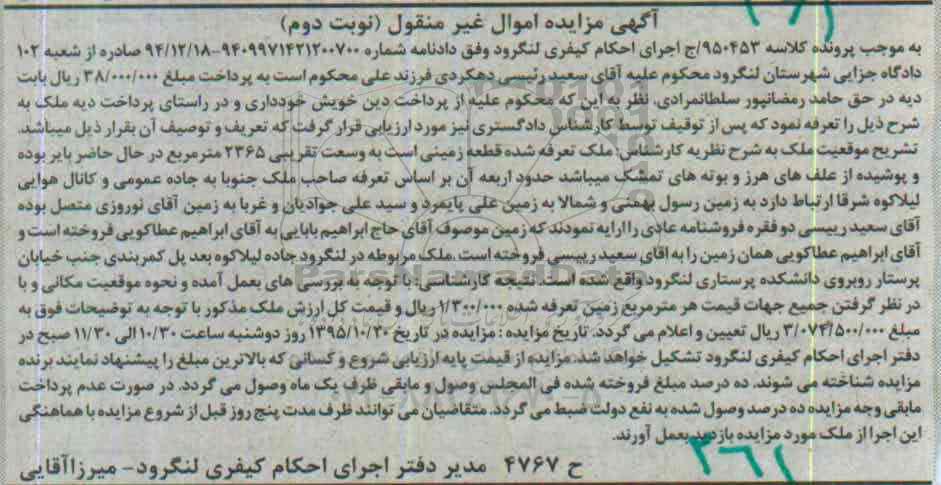 آگهی مزایده اموال غیر منقول (نوبت دوم)
به موجب پرونده کلاسه ۹۵۰۴۵۳/ج اجرای احکام کیفری لنگرود وفق دادنامه شماره ۹۴۰۹۹۷۱۴۲۱۲۰۰۷۰۰-۹۴/۱۲/۱۸ صادره از شعبه ۱۰۲
دادگاه جزایی شهرستان لنگرود محکوم علیه آقای سعید رئیسی دهکردی فرزند علی محکوم است به پرداخت مبلغ ۳۸/۰۰۰/۰۰۰ ریال بابت
دیه در حق حامد رمضانپور سلطانمرادی. نظر به این که محکوم علیه از پرداخت دین خویش خودداری و در راستای پرداخت دیه ملک به
شرح ذیل را تعرفه نمود که پس از توقیف توسط کارشناس دادگستری نیز مورد ارزیابی قرار گرفت که تعریف و توصیف آن بقرار ذیل میباشد.
تشریح موقعیت ملک به شرح نظریه کارشناس: ملک تعرفه شده قطعه زمینی است به وسعت تقریبی ۲۳۶۵ مترمربع در حال حاضر بایر بوده
و پوشیده از علف های هرز و بوته های تمشک میباشد حدود اربعه آن بر اساس تعرفه صاحب ملک جنوبا به جاده عمومی و کانال هوایی
لیلاکوه شرقا ارتباط دارد به زمین رسول بهمنی و شمالا به زمین علی پایمرد و سید علی جوادیان و غربا به زمین آقای نوروزی متصل بوده
آقای سعید رییسی دو فقره فروشنامه عادی را ارایه نمودند که زمین موصوف آقای حاج ابراهیم بابایی به آقای ابراهیم عطاکویی فروخته است و
آقای ابراهیم عطاکویی همان زمین را به اقای سعید رییسی فروخته است. ملک مربوطه در لنگرود جاده لیلاکوه بعد پل کمربندی جنب خیابان
پرستار روبروی دانشکده پرستاری لنگرود واقع شده است. نتیجه کارشناسی: با توجه به بررسی های بعمل آمده و نحوه موقعیت مکانی و با
در نظر گرفتن جمیع جهات قیمت هر مترمربع زمین تعرفه شده ۱/۳۰۰/۰۰۰ ریال و قیمت کل ارزش ملک مذکور با توجه به توضیحات فوق به
مبلغ ۳/۰۷۴/۵۰۰/۰۰۰ ریال تعیین و اعلام می گردد. تاریخ مزایده: مزایده در تاریخ ۱۳۹۵/۱۰/۲۰ روز دوشنبه ساعت ۱۰/۳۰ الی ۱۱/۳۰ صبح در
دفتر اجرای احکام کیفری لنگرود تشکیل خواهد شد. مزایده از قیمت پایه ارزیابی شروع و کسانی که بالاترین مبلغ را پیشنهاد نمایند برنده
مزایده شناخته می شوند. ده درصد مبلغ فروخته شده فی المجلس وصول و مابقی ظرف یک ماه وصول می گردد. در صورت عدم پرداخت
مابقی وجه مزایده ده درصد وصول شده به نفع دولت ضبط می گردد. متقاضیان می توانند ظرف مدت پنج روز قبل از شروع مزایده با هماهنگی
این اجرا از ملک مورد مزایده بازدید بعمل آورند.
ح ۴۷۶۷ مدیر دفتر اجرای احکام کیفری لنگرود- میرزاآقایی
ParsNamadData
۳۶۱